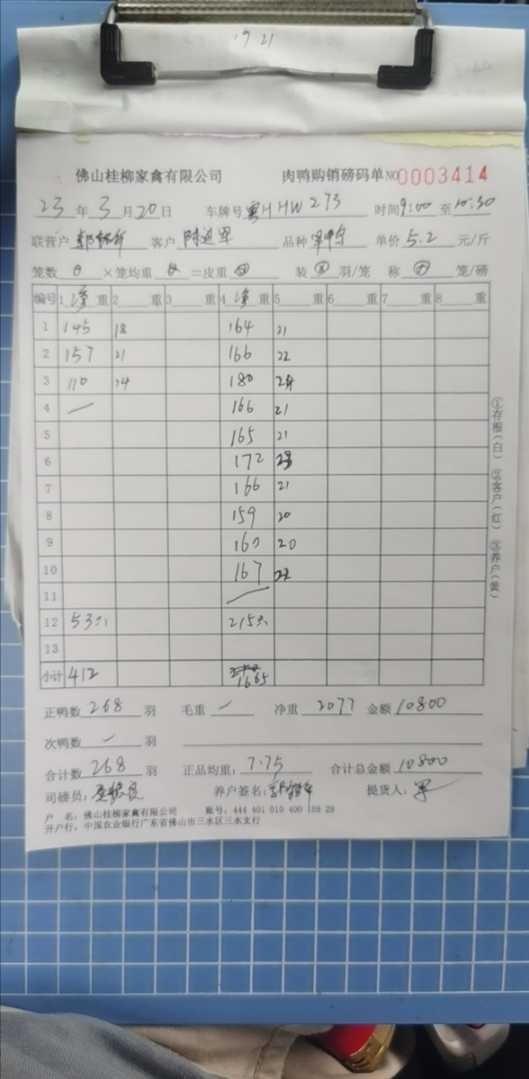 佛山桂柳家禽有限公司 肉鸭购销磅码单 NO 0003414
23 年 3 月 20 日 车牌号 HHW273 时间 9:00 至 10:30
联营户 客户 品种 单价 5.2 元/斤
笼数 0 ×笼均重 =皮重 装 羽/笼 称 笼/磅
编号 1 净 重 2 重 3 重 4 净 重 5 重 6 重 7 重 8 重
1 145 18 164 21
2 157 21 166 22
3 110 14 180 24
4 166 21
5 165 21
6 172 23
7 166 21
8 159 20
9 160 20
10 167 22
11
12 53只 215只
13
小计 412 1665
正鸭数 268 羽 毛重 净重 2077 金额 10800
次鸭数 羽
合计数 268 羽 正品均重: 7.75 合计总金额 10800
司磅员: 养户签名: 提货人: 军
户 名: 佛山桂柳家禽有限公司 账号: 444 401 010 400
开户行: 中国农业银行广东省佛山市三水区三水支行
①存根(白) ②客户(红) ③养户(黄)